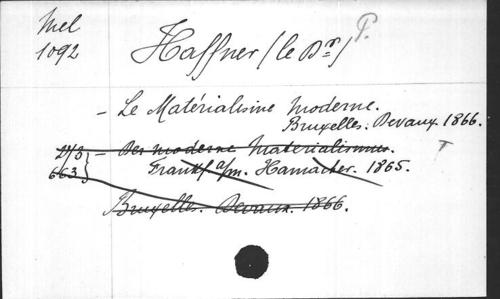 Mel
1092
Haffner (le Dr) P.
- Le Matérialisme moderne.
Bruxelles. Devaux. 1866.
213 - Der moderne Materialismus.
663 Frankf a/m. Hamacher. 1865.
T
Bruxelles. Devaux. 1866.